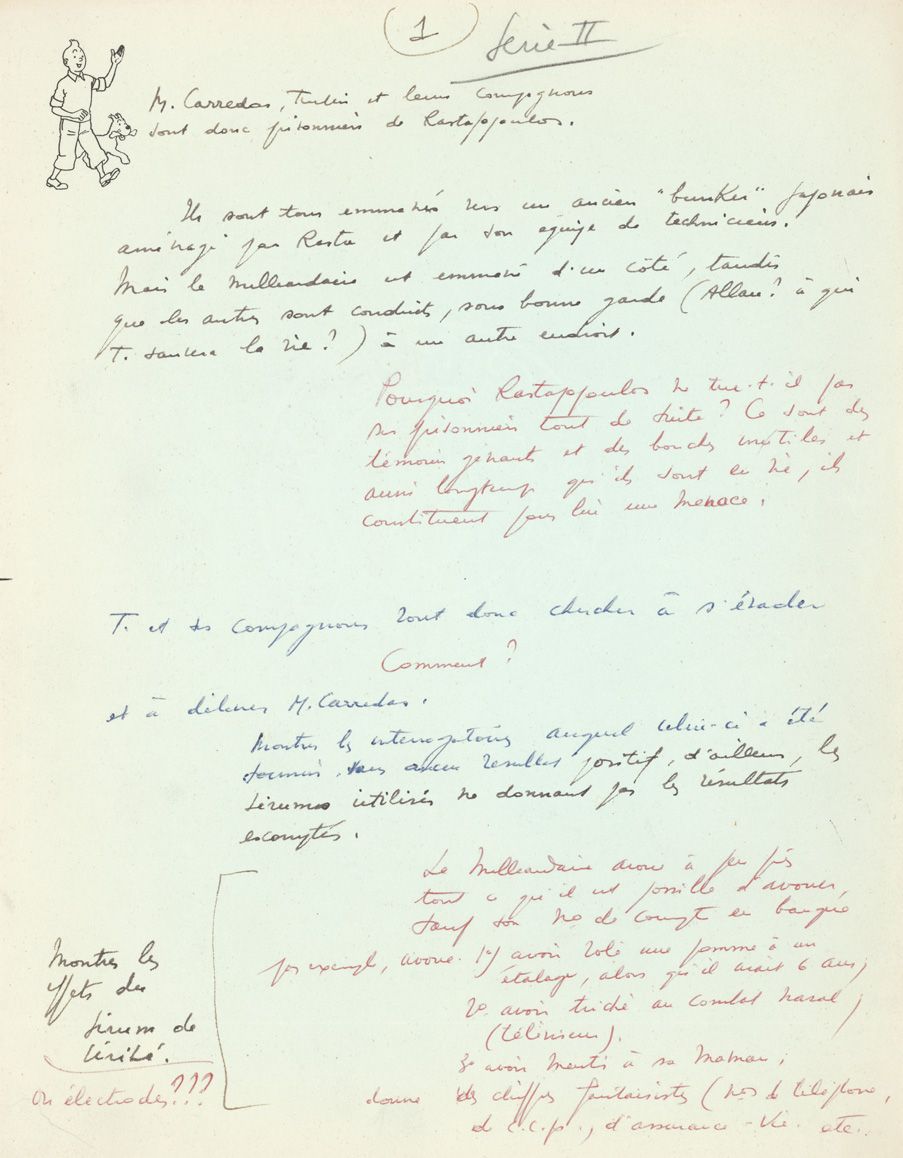 1
Série II
M. Carredas, Tintin et leurs compagnons
sont donc prisonniers de Rastapopoulos.
Ils sont tous emmenés vers un ancien "bunker" japonais
aménagé par Rasta et par son équipe de techniciens.
Mais le milliardaire est emmené d'un côté, tandis
que les autres sont conduits, sous bonne garde (Allan? à qui
T. sauvera la vie?) à un autre endroit.
Pourquoi Rastapopoulos ne tue-t-il pas
ses prisonniers tout de suite? Ce sont des
témoins gênants et des bouches inutiles et
aussi longtemps qu'ils sont en vie, ils
constituent pour lui une menace.
T. et ses compagnons vont donc chercher à s'évader
Comment?
et à délivrer M. Carredas.
Montrer les interrogatoires auquel celui-ci a été
soumis, sans aucun résultat positif, d'ailleurs, les
sérums utilisés ne donnant pas les résultats
escomptés.
Le milliardaire avoue à peu près
tout ce qu'il est possible d'avouer,
sauf son no de compte en banque
par exemple, avoue 1o/ avoir volé une pomme à un
étalage, alors qu'il avait 6 ans;
2o avoir triché au combat naval;
(téléviseur).
3o avoir menti à sa maman;
donne des chiffres fantaisistes (nos de téléphone,
de c.c.p., d'assurance-vie. etc..
Montrer les
effets du
sérum de
vérité.
ou électrodes???